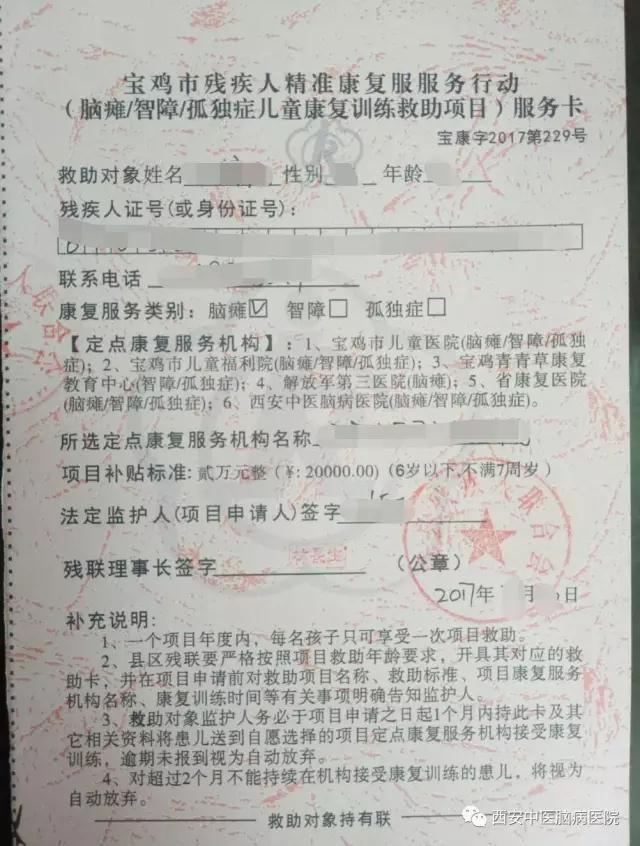 宝鸡市残疾人精准康复服服务行动
（脑瘫/智障/孤独症儿童康复训练救助项目）服务卡
宝康字2017第229号
救助对象姓名 性别 年龄
残疾人证号(或身份证号)：
联系电话
康复服务类别：脑瘫☑ 智障□ 孤独症□
【定点康复服务机构】：1、宝鸡市儿童医院(脑瘫/智障/孤独
症)；2、宝鸡市儿童福利院(脑瘫/智障/孤独症)；3、宝鸡青青草康复
教育中心(智障/孤独症)；4、解放军第三医院(脑瘫)；5、省康复医院
(脑瘫/智障/孤独症)；6、西安中医脑病医院(脑瘫/智障/孤独症)。
所选定点康复服务机构名称
项目补贴标准：贰万元整（¥: 20000.00)（6岁以下,不满7周岁）
法定监护人(项目申请人)签字
残联理事长签字 （公章）
2017年 月 日
补充说明:
1、一个项目年度内，每名孩子只可享受一次项目救助。
2、县区残联要严格按照项目救助年龄要求，开具其对应的救
助卡，并在项目申请前对救助项目名称、救助标准、项目康复服务
机构名称、康复训练时间等有关事项明确告知监护人。
3、救助对象监护人务必于项目申请之日起1个月内持此卡及其
它相关资料将患儿送到自愿选择的项目定点康复服务机构接受康复
训练，逾期未报到视为自动放弃。
4、对超过2个月不能持续在机构接受康复训练的患儿，将视为
自动放弃。
救助对象持有联
西安中医脑病医院